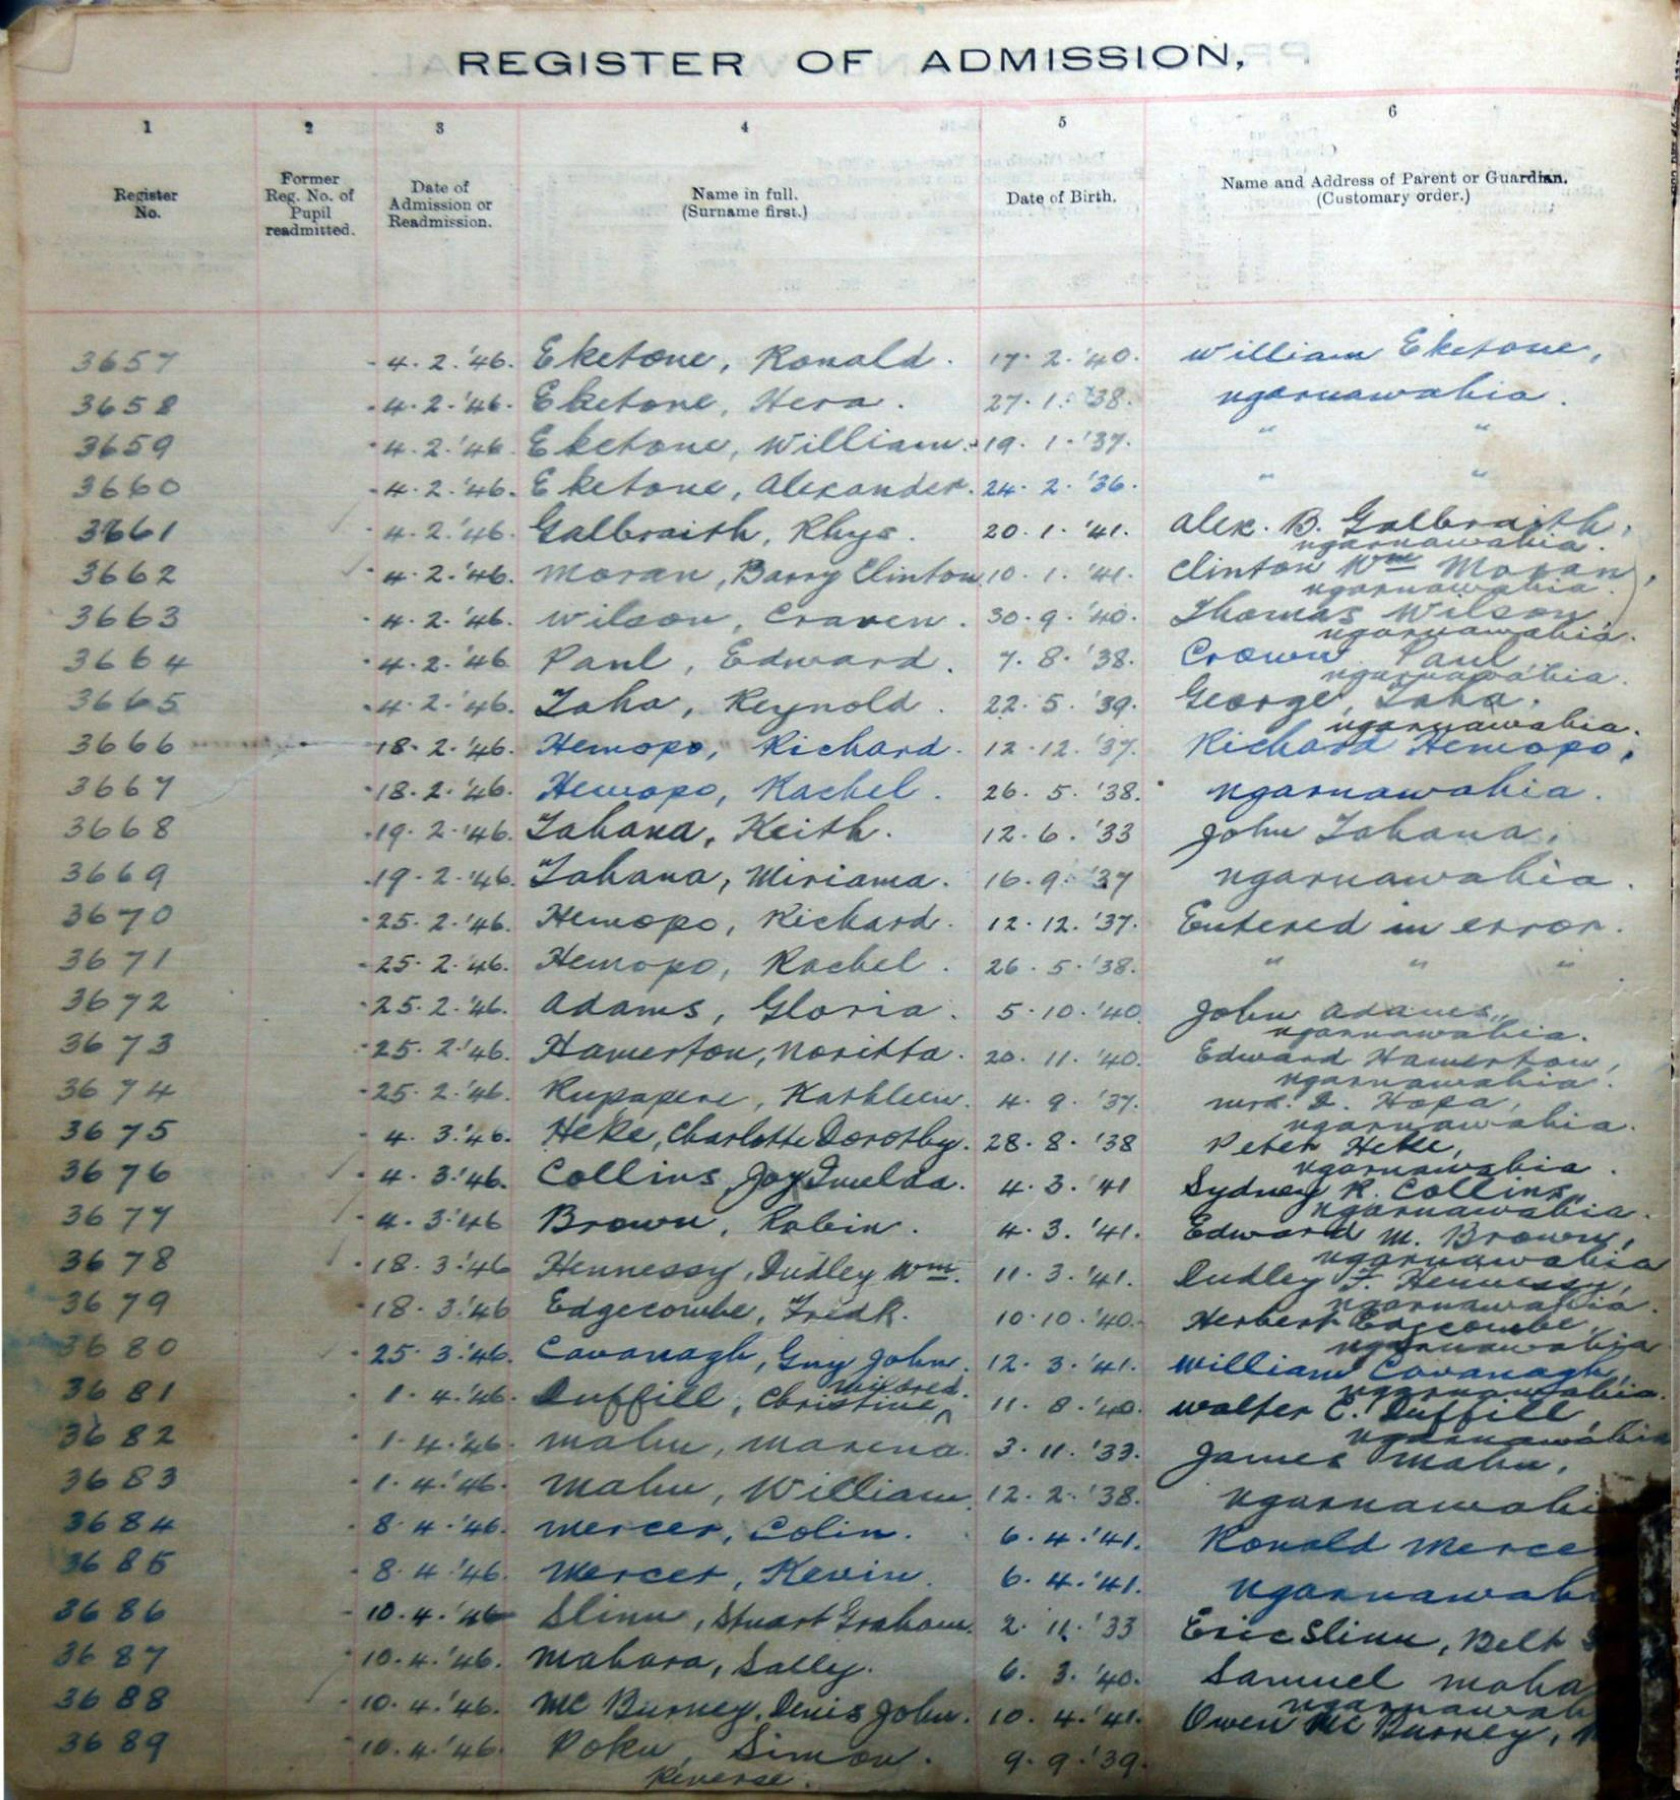 REGISTER OF ADMISSION,
1 2 3 4 5 6
Register No. Former Reg. No. of Pupil readmitted. Date of Admission or Readmission. Name in full. (Surname first.) Date of Birth. Name and Address of Parent or Guardian. (Customary order.)
3657 4.2.'46. Eketone, Ronald. 17.2.'40. William Eketone,
3658 4.2.'46. Eketone, Hera. 27.1.'38. Ngaruawahia.
3659 4.2.'46 Eketone, William. 19.1.'37. " "
3660 4.2.'46. Eketone, Alexander. 24.2.'36. " "
3661 4.2.'46. Galbraith, Rhys. 20.1.'41. Alex. B. Galbraith,
Ngaruawahia.
3662 4.2.'46. Moran, Barry Clinton 10.1.'41. Clinton Wm Moran,
Ngaruawahia.
3663 4.2.'46. Wilson, Craven. 30.9.'40. Thomas Wilson
Ngaruawahia.
3664 4.2.'46 Paul, Edward. 7.8.'38. Crown Paul,
Ngaruawahia.
3665 4.2.'46. Taha, Reynold. 22.5.'39. George Taha.
Ngaruawahia.
3666 18.2.'46. Hemopo, Richard. 12.12.'37. Richard Hemopo,
3667 18.2.'46. Hemopo, Rachel. 26.5.'38. Ngaruawahia.
3668 19.2.'46. Tahana, Keith. 12.6.'33 John Tahana,
3669 19.2.'46. Tahana, Miriama. 16.9.'37 Ngaruawahia.
3670 25.2.'46. Hemopo, Richard. 12.12.'37. Entered in error.
3671 25.2.'46. Hemopo, Rachel. 26.5.'38. " " "
3672 25.2.'46. Adams, Gloria. 5.10.'40 John Adams,
Ngaruawahia.
3673 25.2.'46. Hamerton, Noritta. 20.11.'40. Edward Hamerton,
Ngaruawahia.
3674 25.2.'46. Rupapere, Kathleen. 4.9.'37. Mrs. Hopa,
Ngaruawahia.
3675 4.3.'46. Heke, Charlotte Dorothy. 28.8.'38 Peter Heke,
Ngaruawahia.
3676 4.3.'46. Collins, Joy Imelda. 4.3.'41 Sydney R. Collins,
Ngaruawahia.
3677 4.3.'46 Brown, Robin. 4.3.'41. Edward M. Brown,
Ngaruawahia
3678 18.3.'46 Hennessy, Dudley Wm. 11.3.'41. Dudley F. Hennessy,
Ngaruawahia.
3679 18.3.'46 Edgecombe, Fredk. 10.10.'40. Herbert Edgecombe,
Ngaruawahia
3680 25.3.'46. Cavanagh, Guy John. 12.3.'41. William Cavanagh,
Ngaruawahia.
Mildred.
3681 1.4.'46. Duffill, Christine ^ 11.8.'40. Walter E. Duffill,
Ngaruawahia
3682 1.4.'46. Mahu, Marena. 3.11.'33. James Mahu,
3683 1.4.'46. Mahu, William. 12.2.'38. Ngaruawahi
3684 8.4.'46. Mercer, Colin. 6.4.'41. Ronald Merce
3685 8.4.'46. Mercer, Kevin. 6.4.'41. Ngaruawah
3686 10.4.'46 Slinn, Stuart Graham. 2.11.'33 Eric Slinn, Belt
3687 10.4.'46. Mahara, Sally. 6.3.'40. Samuel Maha
Ngaruawah
3688 10.4.'46. McBurney, Denis John. 10.4.'41. Owen McBurney,
3689 10.4.'46. Poku, Simon. 9.9.'39.
Reverse.